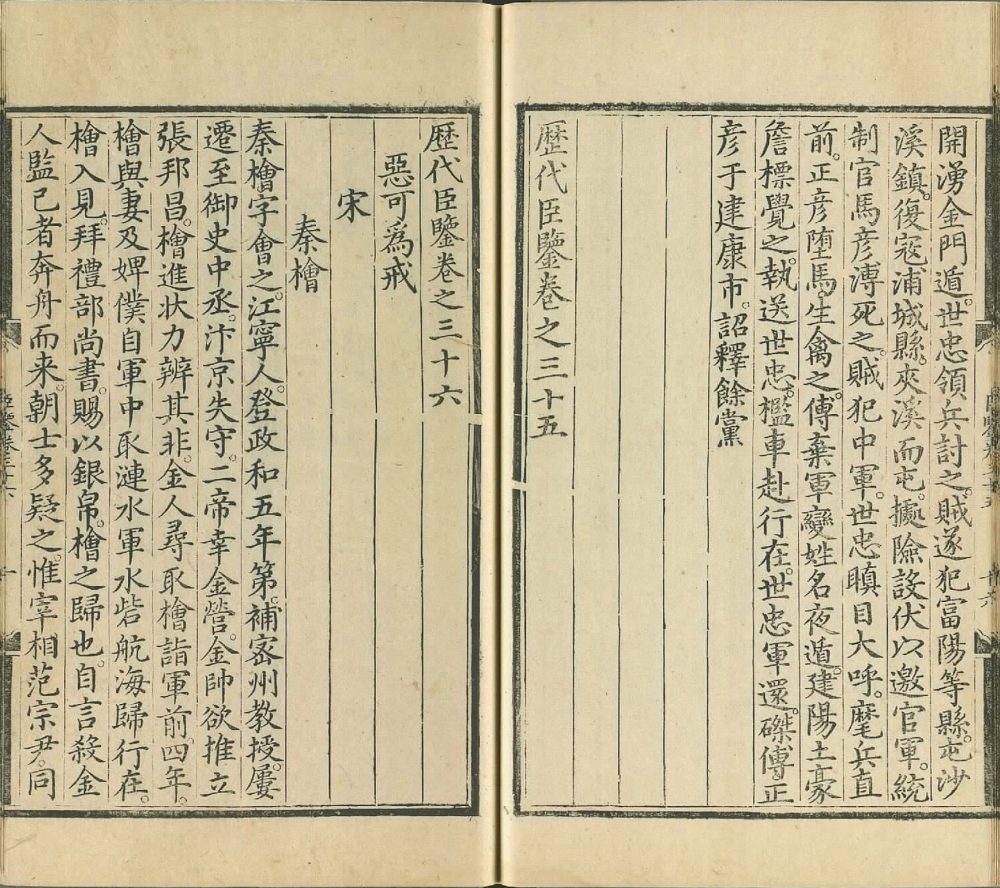 開湧金門遁。世忠領兵討之。賊遂犯富陽等縣。屯沙
溪鎮。復寇浦城縣。夾溪而屯。據險設伏以邀官軍。統
制官馬彥溥死之。賊犯中軍。世忠瞋目大呼。麾兵直
前。正彥墮馬。生禽之。傅棄軍變姓名夜遁。建陽土豪
詹標覺之。執送世忠。檻車赴行在。世忠軍還。磔傅正
彥于建康市。詔釋餘黨
歷代臣鑒卷之三十五
歷代臣鑒卷之三十六
惡可為戒
宋
秦檜
秦檜字會之。江寧人。登政和五年第。補密州教授。屢
遷至御史中丞。汴京失守。二帝幸金營。金帥欲推立
張邦昌。檜進狀力辨其非。金人尋取檜詣軍前。四年。
檜與妻及婢僕自軍中取漣水軍水砦航海歸行在。
檜入見。拜禮部尚書。賜以銀帛。檜之歸也。自言殺金
人監己者奔舟而来。朝士多疑之。惟宰相范宗尹。同